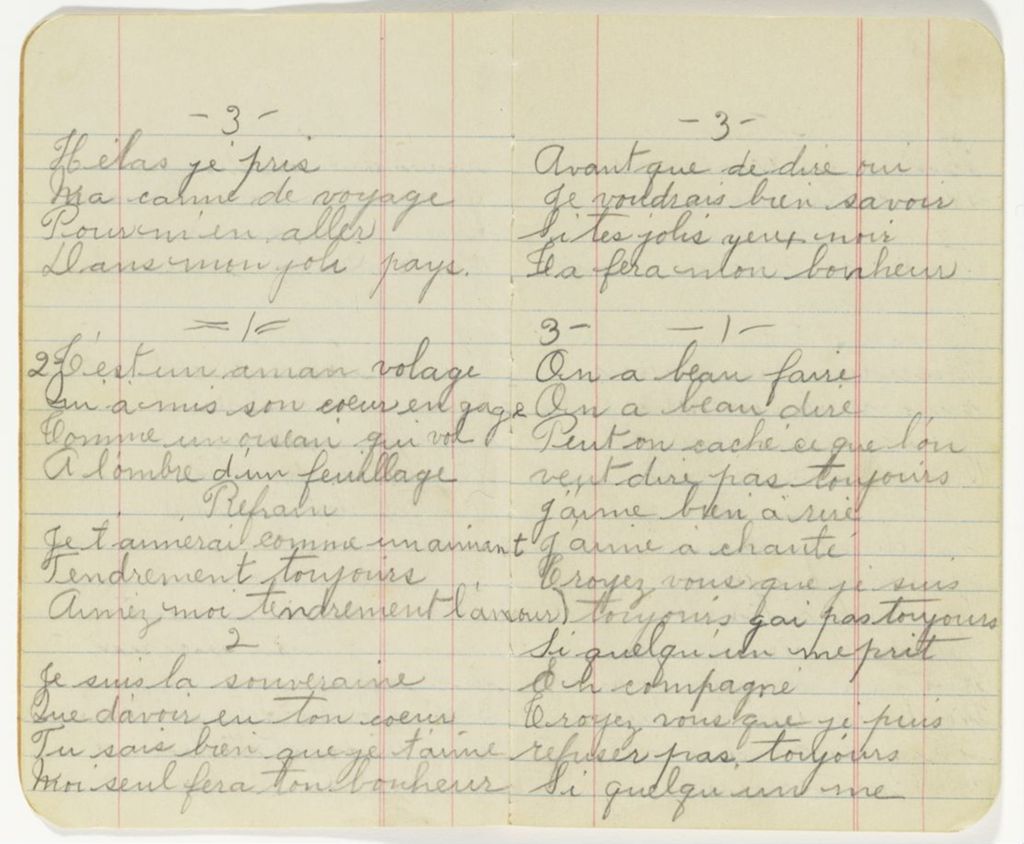 - 3 -
Hélas je pris
Ma canne de voyage
Pour m'en aller
Dans mon joli pays.
= 1 =
2 C'est un aman volage
Qui a mis son coeur en gage
Comme un oiseau qui vol
A l'ombre d'un feuillage
Refrain
Je t'aimerai comme un aimant
Tendrement toujours
Aimez moi tendrement l'amour)
2
Je suis la souveraine
Que d'avoir eu ton coeur
Tu sais bien que je t'aime
Moi seul fera ton bonheur
- 3 -
Avant que de dire oui
Je voudrais bien savoir
Si tes jolis yeux noir
La fera mon bonheur
3- - 1 -
On a beau faire
On a beau dire
Peut on caché ce que l'on
veut dire pas toujours
J'aime bien à rire
J'aime à chanté
Croyez vous que je suis
toujours gai pas toujours
Si quelqu'un me prit
En compagne
Croyez vous que je puis
refuser pas toujours
Si quelqu un me